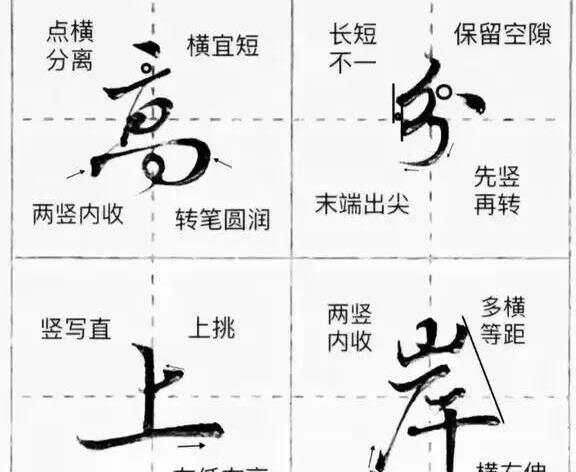 点横
分离
横宜短
高
两竖内收
转笔圆润
长短
不一
保留空隙
分
末端出尖
先竖
再转
竖写直
上挑
上
左低右高
两竖
内收
多横
等距
岸
横右伸